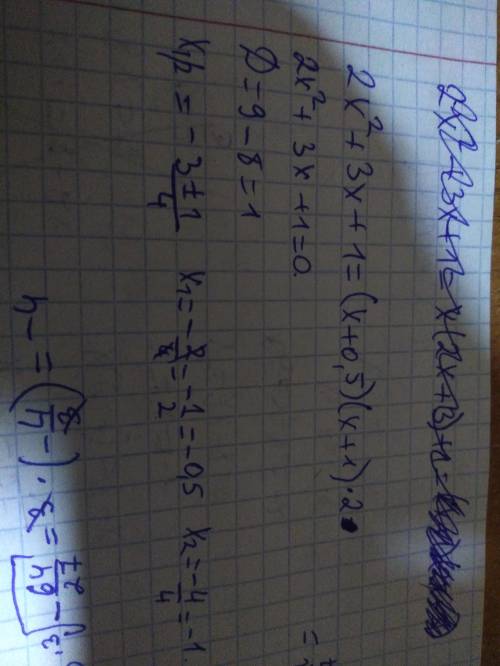 2x² + 3x + 1 = (x+0,5)(x+1)·2
2x² + 3x + 1 = 0.
D = 9 - 8 = 1
x₁/₂ = -3±1/4 x₁ = -2/4 = -1/2 = -0,5 x₂ = -4/4 = -1.
∛-64/27 = 3·(-4/3) = -4